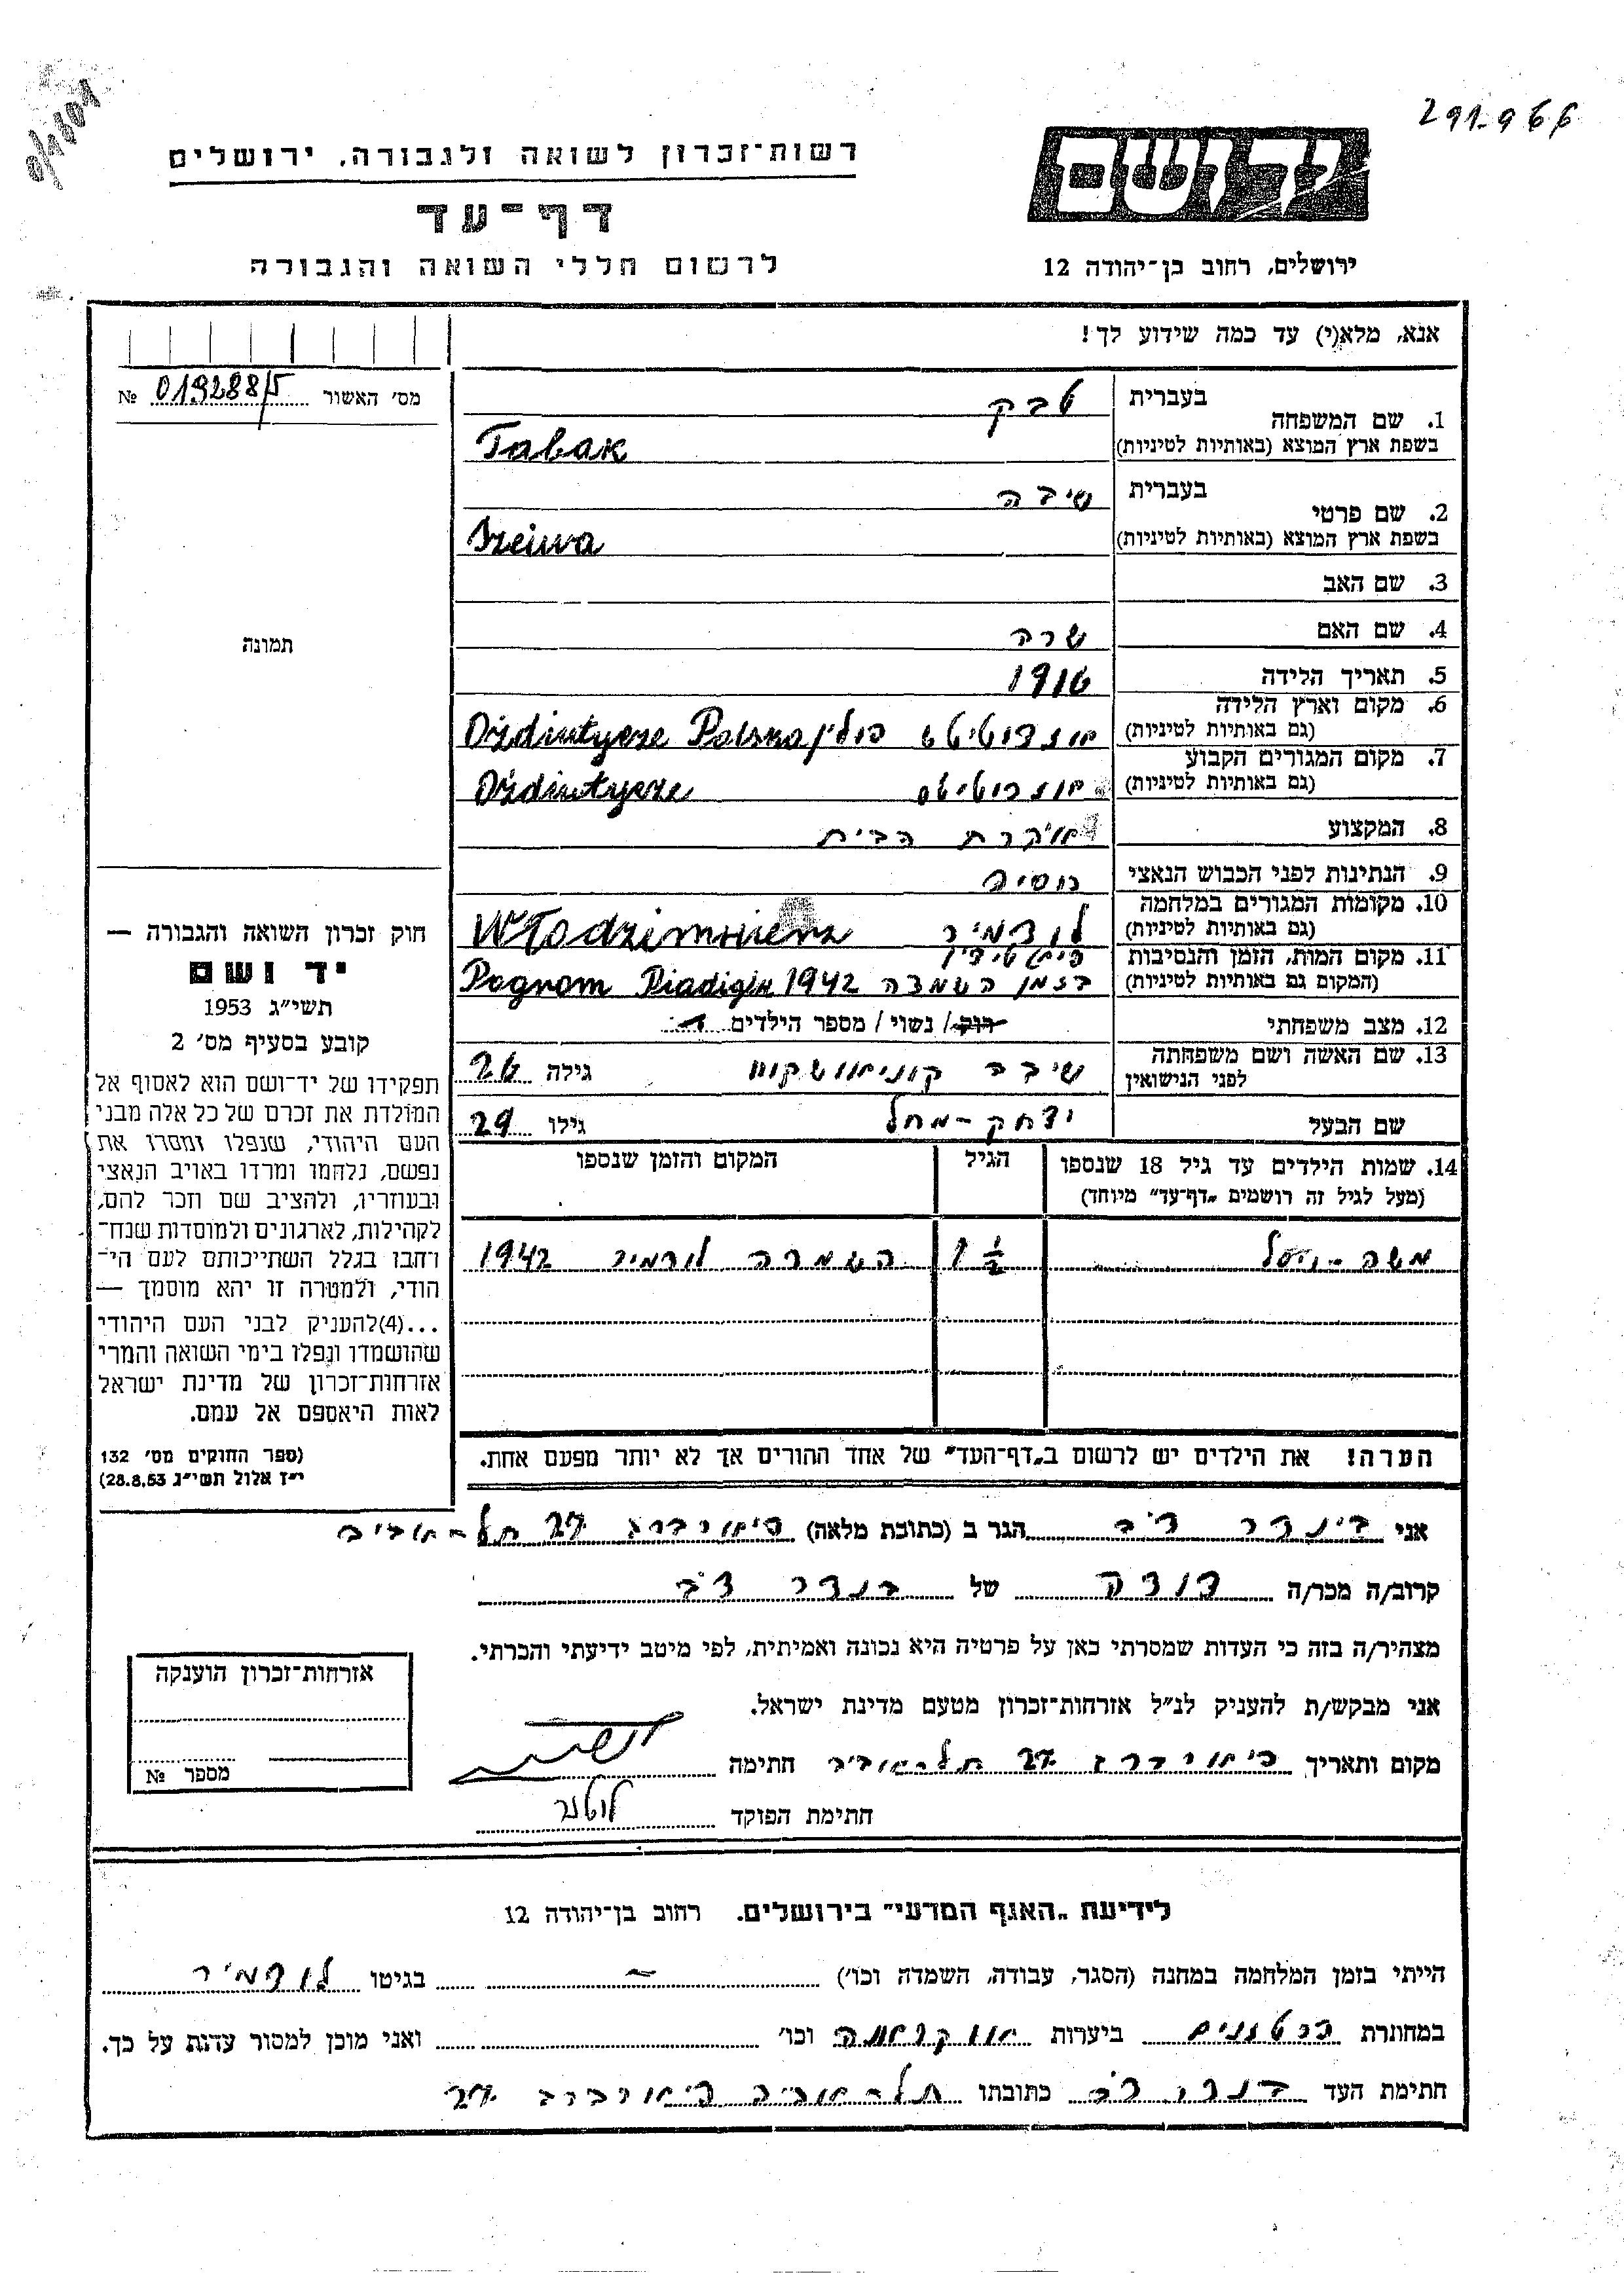 291966
רשות־זכרון לשואה ולגבורה, ירושלים
דף־עד
לרשום חללי השואה והגבורה
יד ושם
ירושלים, רחוב בן־יהודה 12
אנא, מלא(י) עד כמה שידוע לך!
מס׳ האשור 019288/5 №
1. שם המשפחה בעברית טבק
בשפת ארץ המוצא (באותיות לטיניות) Tabak
2. שם פרטי בעברית שיבה
בשפת ארץ המוצא (באותיות לטיניות) Szeiwa
3. שם האב
4. שם האם שרה
5. תאריך הלידה 1916
6. מקום וארץ הלידה
(גם באותיות לטיניות) פולין Oździutycze Polska
7. מקום המגורים הקבוע
(גם באותיות לטיניות) Oździutycze
8. המקצוע עקרת הבית
9. הנתינות לפני הכבוש הנאצי רוסיה
10. מקומות המגורים במלחמה
(גם באותיות לטיניות) לודמיר
11. מקום המות, הזמן והנסיבות
(המקום גם באותיות לטיניות) בזמן השמדה 1942 Pogrom
12. מצב משפחתי רוק/ נשוי/ מספר הילדים 1
13. שם האשה ושם משפחתה
לפני הנישואין שיבה גילה 26
שם הבעל יצחק־ גילו 29
14. שמות הילדים עד גיל 18 שנספו הגיל המקום והזמן שנספו
(מעל לגיל זה רושמים „דף־עד״ מיוחד)
משה־ 1 ½ השמדה לודמיר 1942
הערה! את הילדים יש לרשום ב„דף־העד״ של אחד ההורים אך לא יותר מפעם אחת.
תמונה
חוק זכרון השואה והגבורה —
יד ושם
תשי״ג 1953
קובע בסעיף מס׳ 2
תפקידו של יד־ושם הוא לאסוף אל
המולדת את זכרם של כל אלה מבני
העם היהודי, שנפלו ומסרו את
נפשם, נלחמו ומרדו באויב הנאצי
ובעוזריו, ולהציב שם וזכר להם,
לקהילות, לארגונים ולמוסדות שנח־
רבו בגלל השתייכותם לעם הי־
הודי, ולמטרה זו יהא מוסמך —
...(4)להעניק לבני העם היהודי
שהושמדו ונפלו בימי השואה והמרי
אזרחות־זכרון של מדינת ישראל
לאות היאספם אל עמם.
(ספר החוקים מס׳ 132
י״ז אלול תשי״ג 28.8.53)
אני בינדר דב הגר ב (כתובת מלאה) 27 תל־אביב
קרוב/ה מכר/ה דודה של בנדר דב
מצהיר/ה בזה כי העדות שמסרתי כאן על פרטיה היא נכונה ואמיתית, לפי מיטב ידיעתי והכרתי.
אני מבקש/ת להעניק לנ״ל אזרחות־זכרון מטעם מדינת ישראל.
מקום ותאריך 27 תל־אביב חתימה
חתימת הפוקד
אזרחות־זכרון הוענקה
מספר №
לידיעת „האגף המדעי״ בירושלים. רחוב בן־יהודה 12
הייתי בזמן המלחמה במחנה (הסגר, עבודה, השמדה וכו׳) – בגיטו לודמיר
במחתרת פרטזנים ביערות אוקראינה וכו׳ ואני מוכן למסור עדות על כך.
חתימת העד בנדר דב כתובתו תל־אביב 27